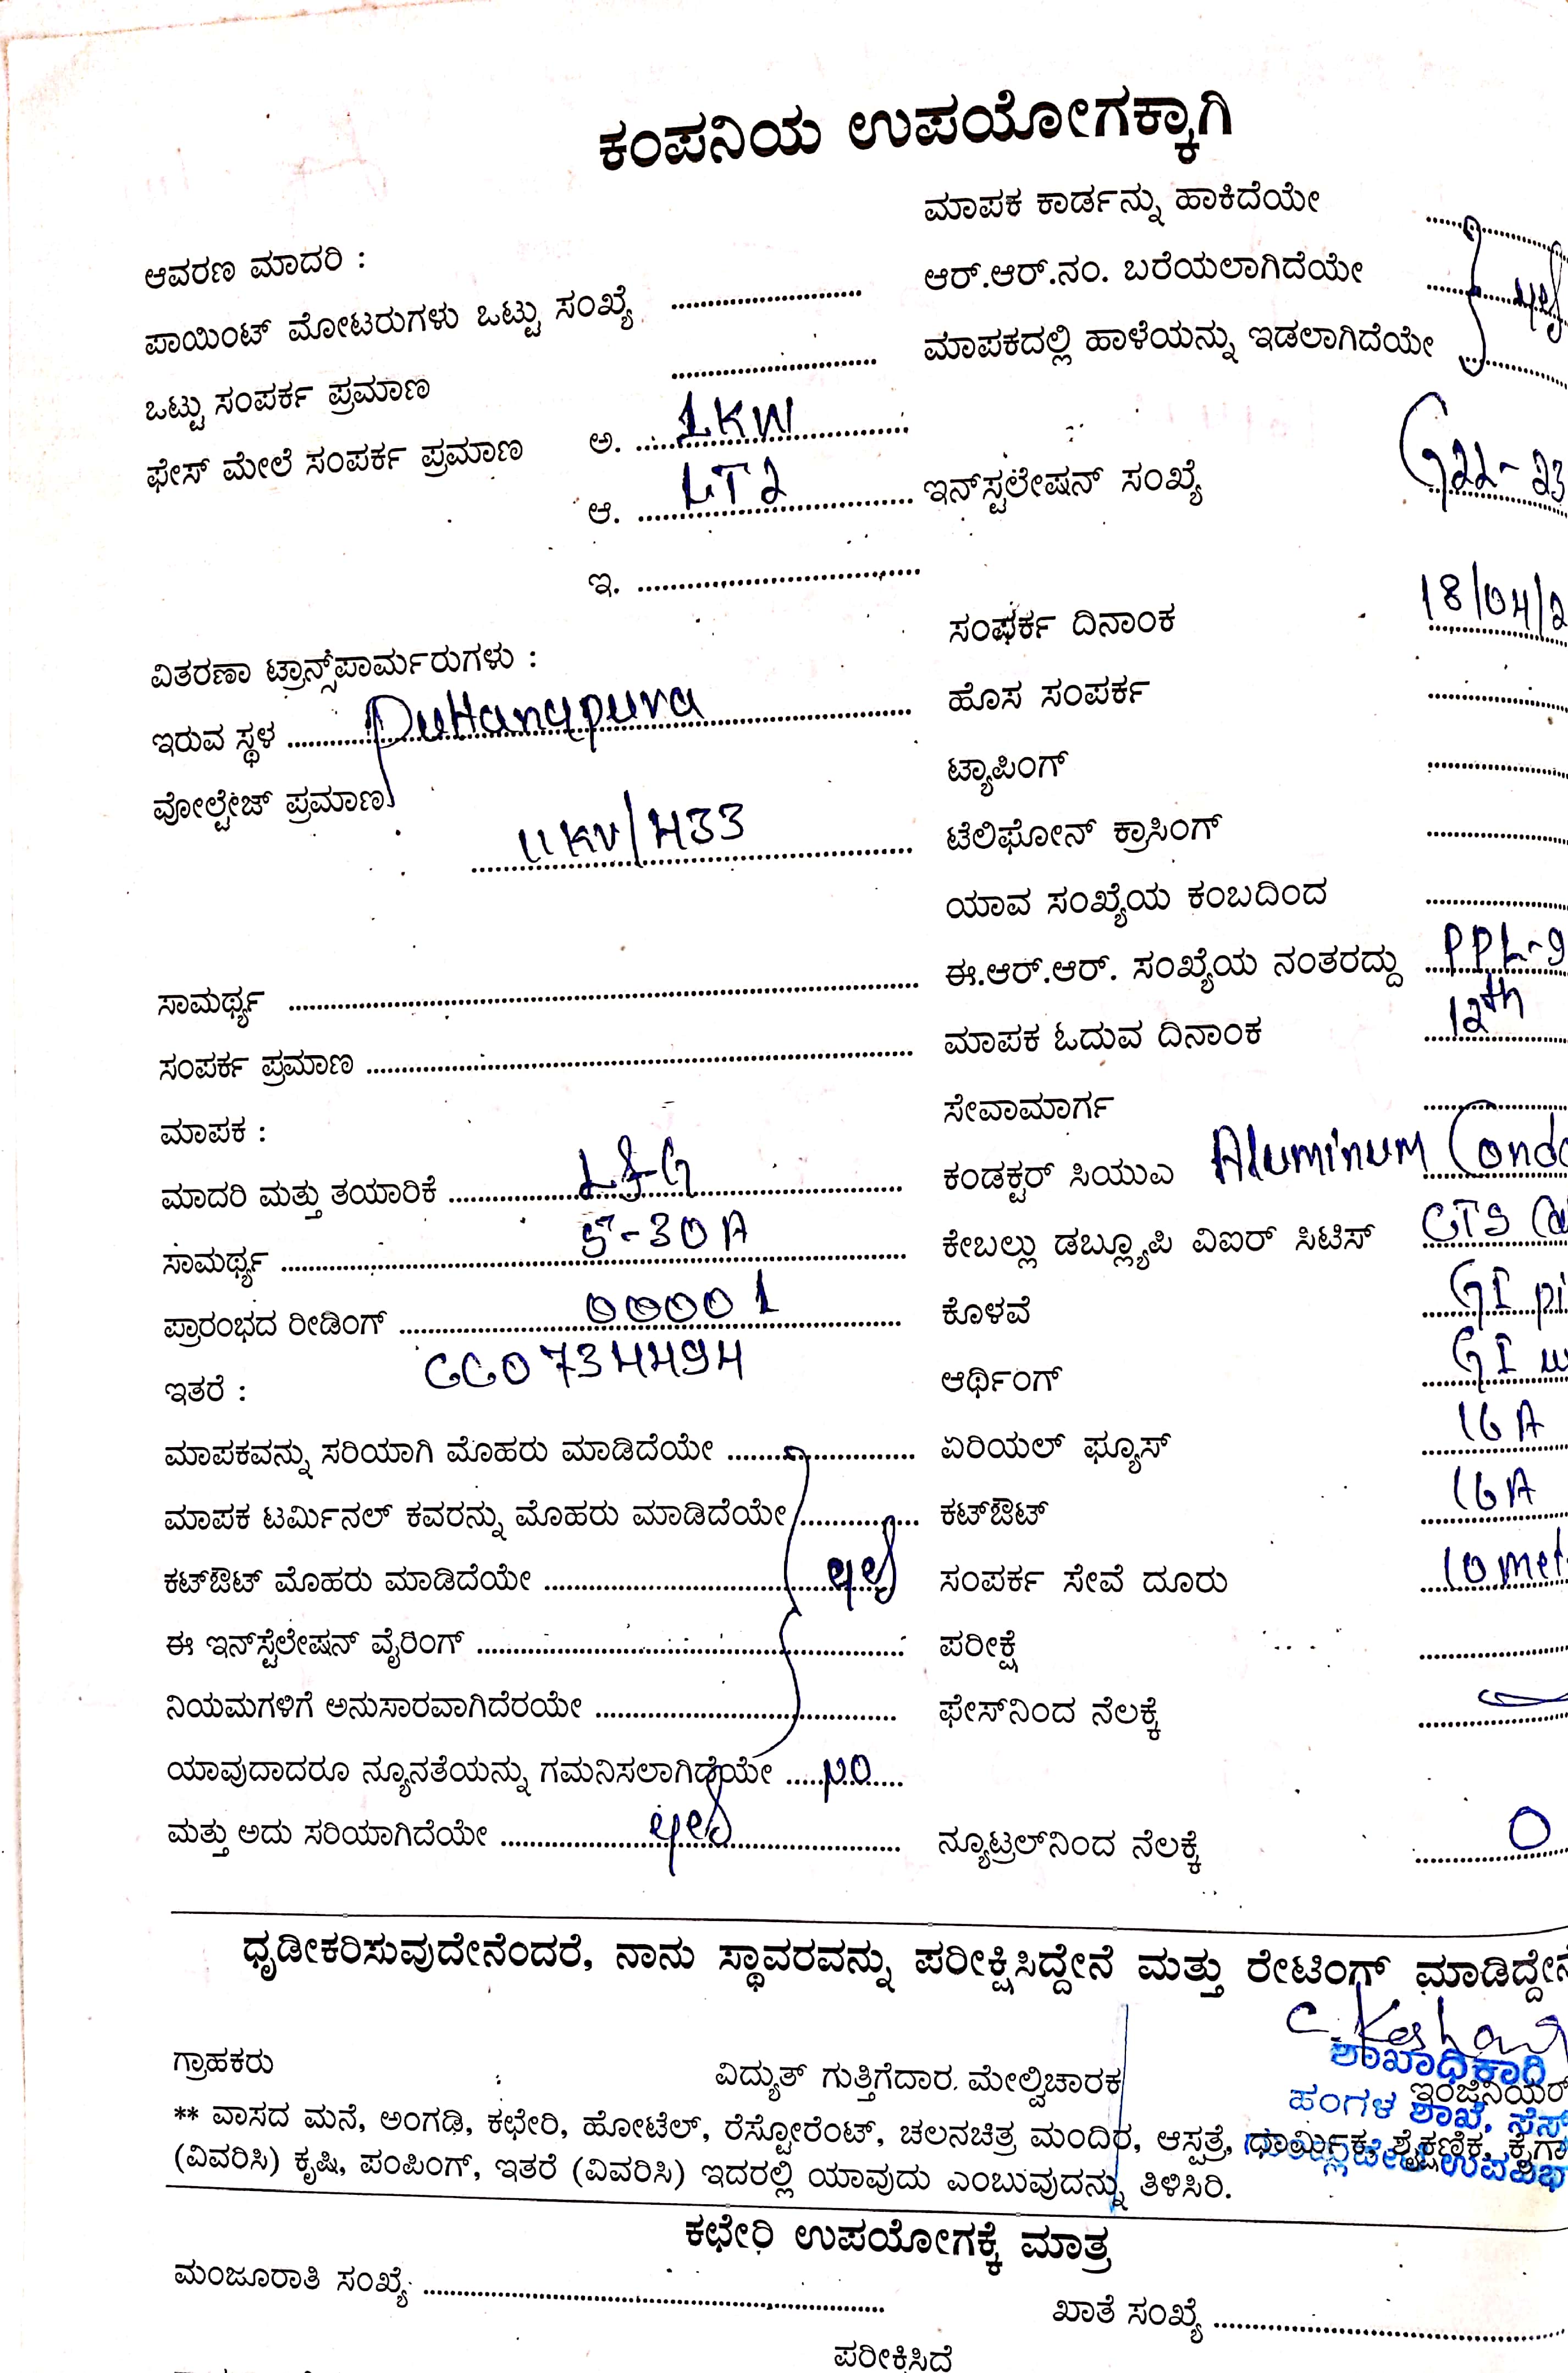 ಕಂಪನಿಯ ಉಪಯೋಗಕ್ಕಾಗಿ
ಮಾಪಕ ಕಾರ್ಡನ್ನು ಹಾಕಿದೆಯೇ
ಆವರಣ ಮಾದರಿ :
ಆರ್.ಆರ್.ನಂ. ಬರೆಯಲಾಗಿದೆಯೇ yes
ಪಾಯಿಂಟ್ ಮೋಟರುಗಳು ಒಟ್ಟು ಸಂಖ್ಯೆ
ಮಾಪಕದಲ್ಲಿ ಹಾಳೆಯನ್ನು ಇಡಲಾಗಿದೆಯೇ
ಒಟ್ಟು ಸಂಪರ್ಕ ಪ್ರಮಾಣ
ಫೇಸ್ ಮೇಲೆ ಸಂಪರ್ಕ ಪ್ರಮಾಣ ಅ. 1KW
ಆ. LT2 ಇನ್‌ಸ್ಟಲೇಷನ್ ಸಂಖ್ಯೆ G22-23
ಇ.
ಸಂಪರ್ಕ ದಿನಾಂಕ 18/04/2
ವಿತರಣಾ ಟ್ರಾನ್ಸ್‌ಪಾರ್ಮರುಗಳು :
ಇರುವ ಸ್ಥಳ Puttanapura ಹೊಸ ಸಂಪರ್ಕ
ವೋಲ್ಟೇಜ್ ಪ್ರಮಾಣ ಟ್ಯಾಪಿಂಗ್
11KV/433 ಟೆಲಿಫೋನ್ ಕ್ರಾಸಿಂಗ್
ಯಾವ ಸಂಖ್ಯೆಯ ಕಂಬದಿಂದ
ಸಾಮರ್ಥ್ಯ ಈ.ಆರ್.ಆರ್. ಸಂಖ್ಯೆಯ ನಂತರದ್ದು PPL-9
ಸಂಪರ್ಕ ಪ್ರಮಾಣ ಮಾಪಕ ಓದುವ ದಿನಾಂಕ 12th
ಮಾಪಕ : ಸೇವಾಮಾರ್ಗ
ಮಾದರಿ ಮತ್ತು ತಯಾರಿಕೆ L&G ಕಂಡಕ್ಟರ್ ಸಿಯುಎ Aluminum Condc
ಸಾಮರ್ಥ್ಯ 5-30A ಕೇಬಲ್ಲು ಡಬ್ಲ್ಯೂಪಿ ವಿಐರ್ ಸಿಟಿಸ್ CTS Ca
ಪ್ರಾರಂಭದ ರೀಡಿಂಗ್ 00001 ಕೊಳವೆ GI pi
ಇತರೆ : CC07344494 ಆರ್ಥಿಂಗ್ GI w
ಮಾಪಕವನ್ನು ಸರಿಯಾಗಿ ಮೊಹರು ಮಾಡಿದೆಯೇ ಏರಿಯಲ್ ಫ್ಯೂಸ್ 16A
ಮಾಪಕ ಟರ್ಮಿನಲ್ ಕವರನ್ನು ಮೊಹರು ಮಾಡಿದೆಯೇ ಕಟ್‌ಔಟ್ 16A
ಕಟ್‌ಔಟ್ ಮೊಹರು ಮಾಡಿದೆಯೇ yes ಸಂಪರ್ಕ ಸೇವೆ ದೂರು 10 met
ಈ ಇನ್‌ಸ್ಟೆಲೇಷನ್ ವೈರಿಂಗ್ ಪರೀಕ್ಷೆ
ನಿಯಮಗಳಿಗೆ ಅನುಸಾರವಾಗಿದೆರಯೇ ಫೇಸ್‌ನಿಂದ ನೆಲಕ್ಕೆ
ಯಾವುದಾದರೂ ನ್ಯೂನತೆಯನ್ನು ಗಮನಿಸಲಾಗಿದೆಯೇ no
ಮತ್ತು ಅದು ಸರಿಯಾಗಿದೆಯೇ yes ನ್ಯೂಟ್ರಲ್‌ನಿಂದ ನೆಲಕ್ಕೆ 0
ಧೃಡೀಕರಿಸುವುದೇನೆಂದರೆ, ನಾನು ಸ್ಥಾವರವನ್ನು ಪರೀಕ್ಷಿಸಿದ್ದೇನೆ ಮತ್ತು ರೇಟಿಂಗ್ ಮಾಡಿದ್ದೇನೆ
ಶಾಖಾಧಿಕಾರಿ
ಗ್ರಾಹಕರು ವಿದ್ಯುತ್ ಗುತ್ತಿಗೆದಾರ. ಮೇಲ್ವಿಚಾರಕ ಇಂಜಿನಿಯರ್
ಹಂಗಳ ಶಾಖೆ, ಸೆಸ್
** ವಾಸದ ಮನೆ, ಅಂಗಡಿ, ಕಛೇರಿ, ಹೋಟೆಲ್, ರೆಸ್ಟೋರೆಂಟ್, ಚಲನಚಿತ್ರ ಮಂದಿರ, ಆಸ್ಪತ್ರೆ, ಧಾರ್ಮಿಕ, ಶೈಕ್ಷಣಿಕ, ಕೈಗಾ
(ವಿವರಿಸಿ) ಕೃಷಿ, ಪಂಪಿಂಗ್, ಇತರೆ (ವಿವರಿಸಿ) ಇದರಲ್ಲಿ ಯಾವುದು ಎಂಬುವುದನ್ನು ತಿಳಿಸಿರಿ.
ಕಛೇರಿ ಉಪಯೋಗಕ್ಕೆ ಮಾತ್ರ
ಮಂಜೂರಾತಿ ಸಂಖ್ಯೆ ಖಾತೆ ಸಂಖ್ಯೆ
ಪರೀಕ್ಷಿಸಿದೆ